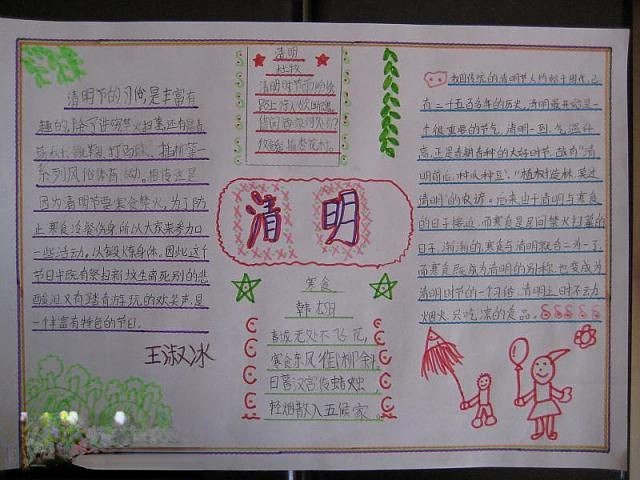 清明节的习俗是丰富有
趣的,除了讲究禁火扫墓,还有踏青
荡秋千、蹴鞠、打马球、插柳等一
系列风俗体育活动。相传这是
因为清明节要寒食禁火,为了防
止寒食冷餐伤身,所以大家来参加
一些活动。以锻炼身体。因此这个
节日中既有祭扫新坟生离死别的悲
酸泪,又有踏青游玩的欢笑声,是
一个丰富有特色的节日。
王淑冰
清明
杜牧
清明时节雨纷纷
路上行人欲断魂
借问酒家何处有
牧童遥指杏花村
清明
寒食
韩
春城无处不飞花
寒食东风御柳斜
日暮汉宫传蜡烛
轻烟散入五侯家
我国传统的清明节大约始于周代,已
有二千五百多年的历史。清明最开始是一
个很重要的节气,清明一到,气温升
高,正是春耕春种的大好时节,故有“清
明前后,种瓜种豆”。“植树造林,莫过
清明”的农谚。后来由于清明与寒食
的日子接近,而寒食是民间禁火扫墓的
日子,渐渐的,寒食与清明就合二为一了,
而寒食既成为清明的别称,也变成为
清明时节的一个习俗,清明之时不动
烟火,只吃凉的食品。